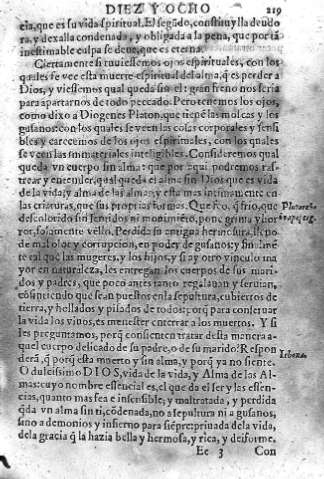 DIEZ Y OCHO 219
cia, que es su vida spiritual. El segũdo, constituylla deudo
ra, y dexalla condenada, y obligada a la pena, que por tã
inestimable culpa se deue, que es eterna.
Ciertamente si tuuiessemos ojos espirituales, con los
quales se vee esta muerte espiritual del alma, q̃ es perder a
Dios, y viessemos qual queda sin el: gran freno nos seria
para apartarnos de todo peccado. Pero tenemos los ojos,
como dixo a Diogenes Platon, que tienẽ las moscas y los
gusanos: con los quales se veen las cosas corporales y sensi
bles, y carecemos de los ojos espirituales, con los quales
se veen las immateriales inteligibles. Consideremos qual
queda vn cuerpo sin alma: que por aqui podremos ras-
trear y entender, qual queda el alma sin Dios, que es vida
de la vida, y alma de las almas, y esta mas intimamente en
las criaturas, que sus proprias formas. Que feo, q̃ frio, que
descolorido sin sentidos ni mouimiẽto, pone grima y hor
ror, solamente vello. Perdida su antigua hermosura,
de mal olor y corrupcion, en poder de gusanos; y finalmẽ
te tal que las mugeres, y los hijos, y si ay otro vinculo ma
yor en naturaleza, les entregan los cuerpos de sus mari-
dos y padres, que poco antes tanto regalauan y seruian,
cõsintiendo que sean puestos en la sepultura, cubiertos de
tierra, y hollados y pisados de todos: porq̃ para conseruar
la vida los viuos, es menester enterrar a los muertos. Y si
les preguntamos, porq̃ consienten tratar desta manera a-
quel cuerpo delicado de su padre, o de su marido? Respon
derã, q̃ porq̃ esta muerto y sin alma, y porq̃ ya no siente.
O dulcissimo DIOS, vida de la vida, y Alma de las Al-
mas: cuyo nombre essencial es, el que da el ser y las essen-
cias, quanto mas fea e insensible, y maltratada, y perdida
q̃da vn alma sin ti, cõdenada, no a sepultura ni a gusanos,
sino a demonios y infierno para siẽpre: priuada de la vida,
de la gracia q̃ la hazia bella y hermosa, y rica, y deiforme.
Ee 3 Con